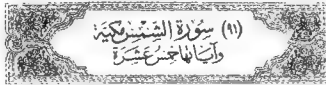 (٩١) سُورَةُ الشَّمْسِ مَكِّيَّة
وَآيَاتُهَا خَمْسُ عَشَرَةَ